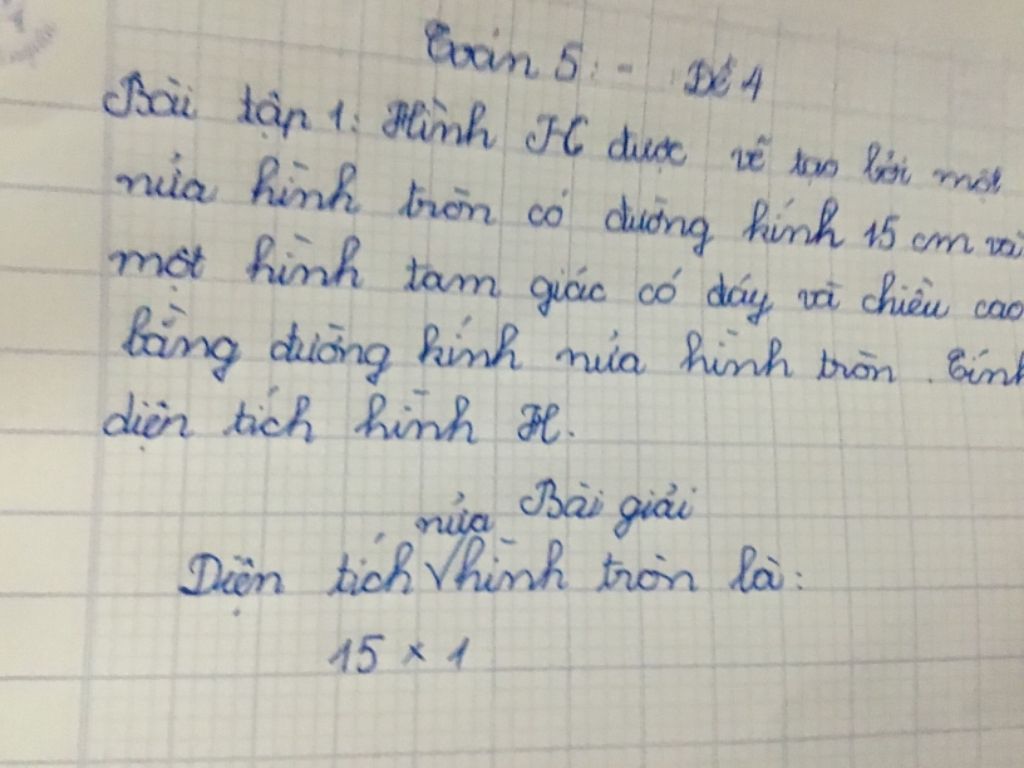 Toán 5: - Đề 4
Bài tập 1: Hình H được vẽ tạo bởi một
nửa hình tròn có đường kính 15 cm và
một hình tam giác có đáy và chiều cao
bằng đường kính nửa hình tròn. Tính
diện tích hình H.
Bài giải
Diện tích nửa hình tròn là:
15 × 1